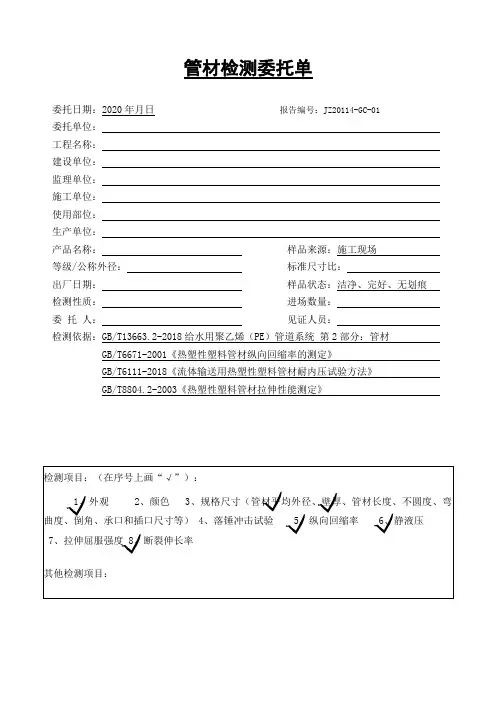 管材检测委托单
委托日期：2020年月日 报告编号：JZ20114-GC-01
委托单位：
工程名称：
建设单位：
监理单位：
施工单位：
使用部位：
生产单位：
产品名称： 样品来源：施工现场
等级/公称外径： 标准尺寸比：
出厂日期： 样品状态：洁净、完好、无划痕
检测性质： 进场数量：
委 托 人： 见证人员：
检测依据：GB/T13663.2-2018给水用聚乙烯（PE）管道系统 第2部分：管材
GB/T6671-2001《热塑性塑料管材纵向回缩率的测定》
GB/T6111-2018《流体输送用热塑性塑料管材耐内压试验方法》
GB/T8804.2-2003《热塑性塑料管材拉伸性能测定》
检测项目：（在序号上画“√”）：
1√ 外观 2、颜色 3、规格尺寸（管材√平均外径、√壁厚、管材长度、不圆度、弯
曲度、倒角、承口和插口尺寸等） 4、落锤冲击试验 5√ 纵向回缩率 6√、静液压
7、拉伸屈服强度 8√ 断裂伸长率
其他检测项目：